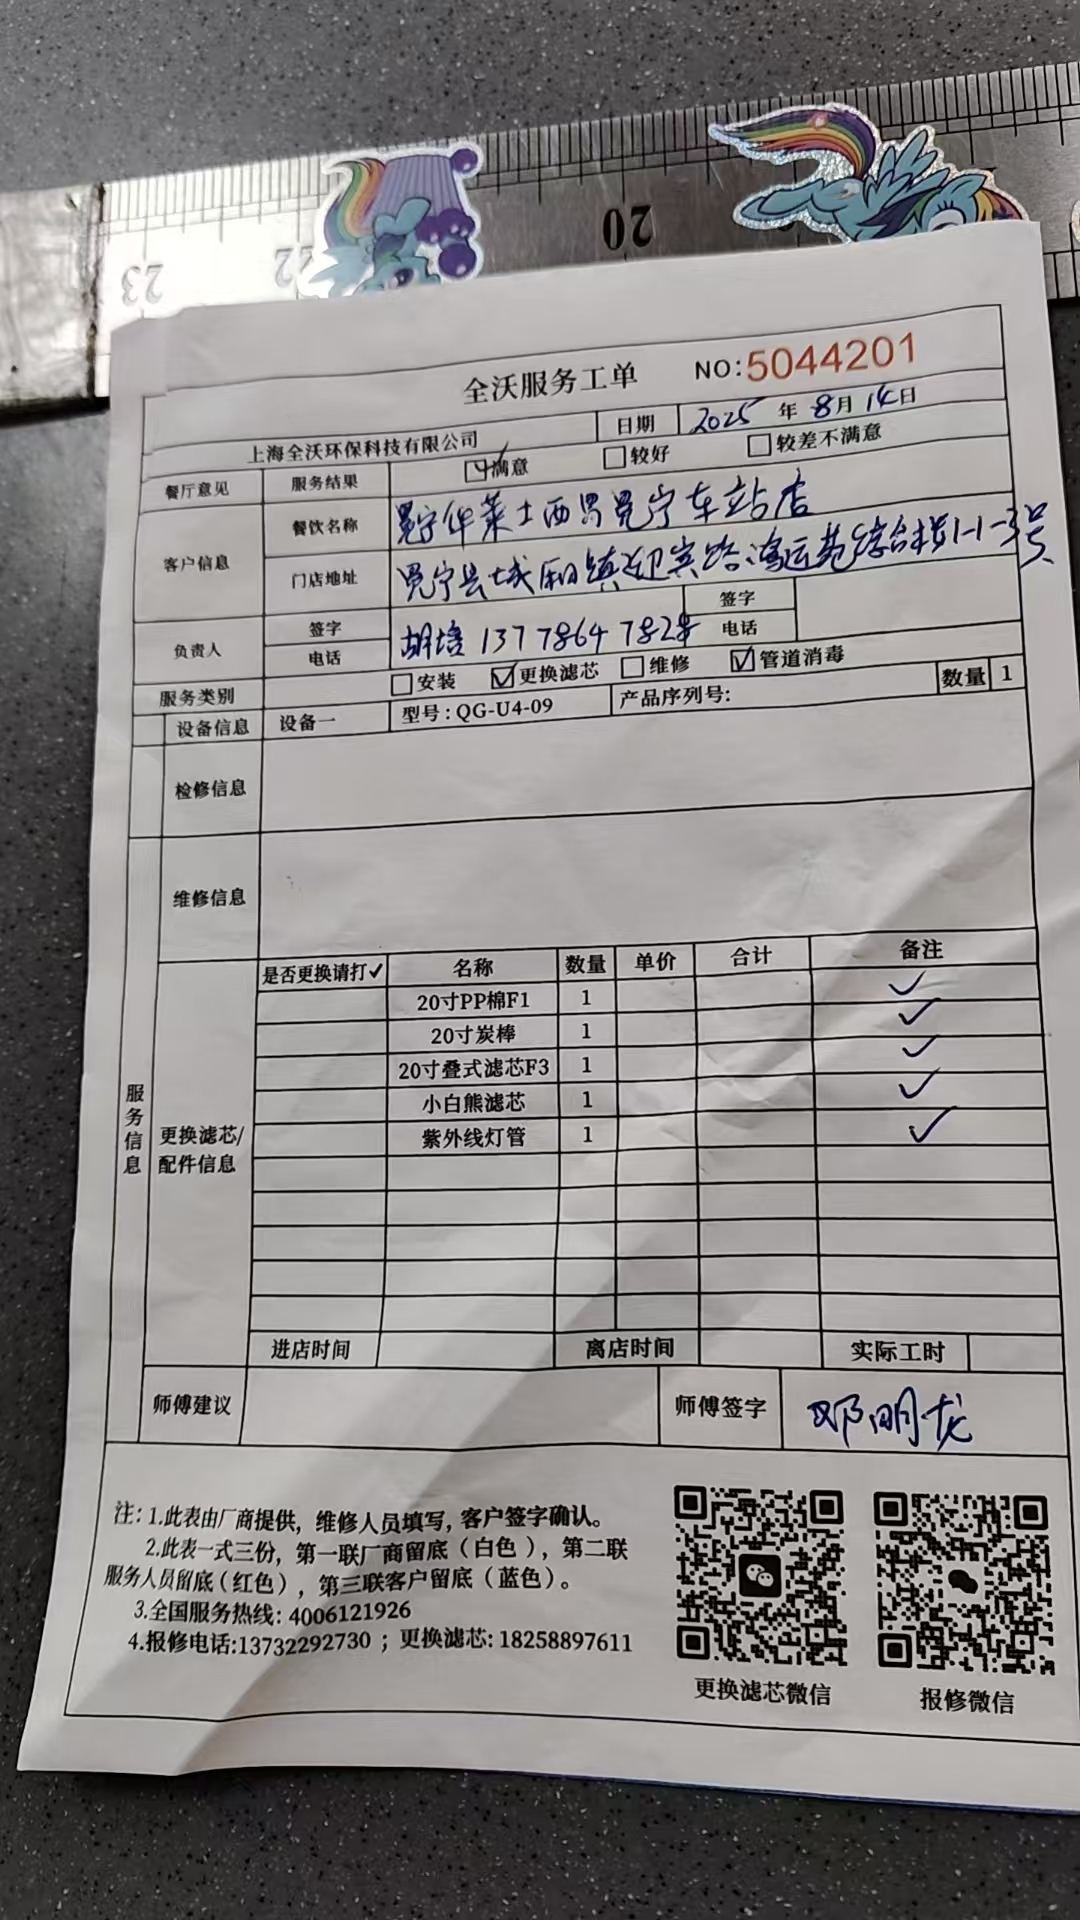 23
22
20
全沃服务工单 NO:5044201
上海全沃环保科技有限公司 日期 2025 年 8 月 14 日
餐厅意见 服务结果 满意 较好 较差不满意
客户信息 餐饮名称 冕宁华莱士西昌冕宁车站店
门店地址 冕宁县城厢镇迎宾路鸿运苑综合楼1-1-3号
负责人 签字 电话 胡培 13778647828 签字 电话
服务类别 安装 更换滤芯 维修 管道消毒
设备信息 设备一 型号:QG-U4-09 产品序列号: 数量 1
检修信息
维修信息
服务信息
更换滤芯/配件信息
是否更换请打✓ 名称 数量 单价 合计 备注
20寸PP棉F1 1 ✓
20寸炭棒 1 ✓
20寸叠式滤芯F3 1 ✓
小白熊滤芯 1 ✓
紫外线灯管 1 ✓
进店时间 离店时间 实际工时
师傅建议 师傅签字 邓明龙
注: 1.此表由厂商提供，维修人员填写，客户签字确认。
2.此表一式三份，第一联厂商留底（白色），第二联
服务人员留底（红色），第三联客户留底（蓝色）。
3.全国服务热线: 4006121926
4.报修电话:13732292730 ；更换滤芯: 18258897611
更换滤芯微信 报修微信